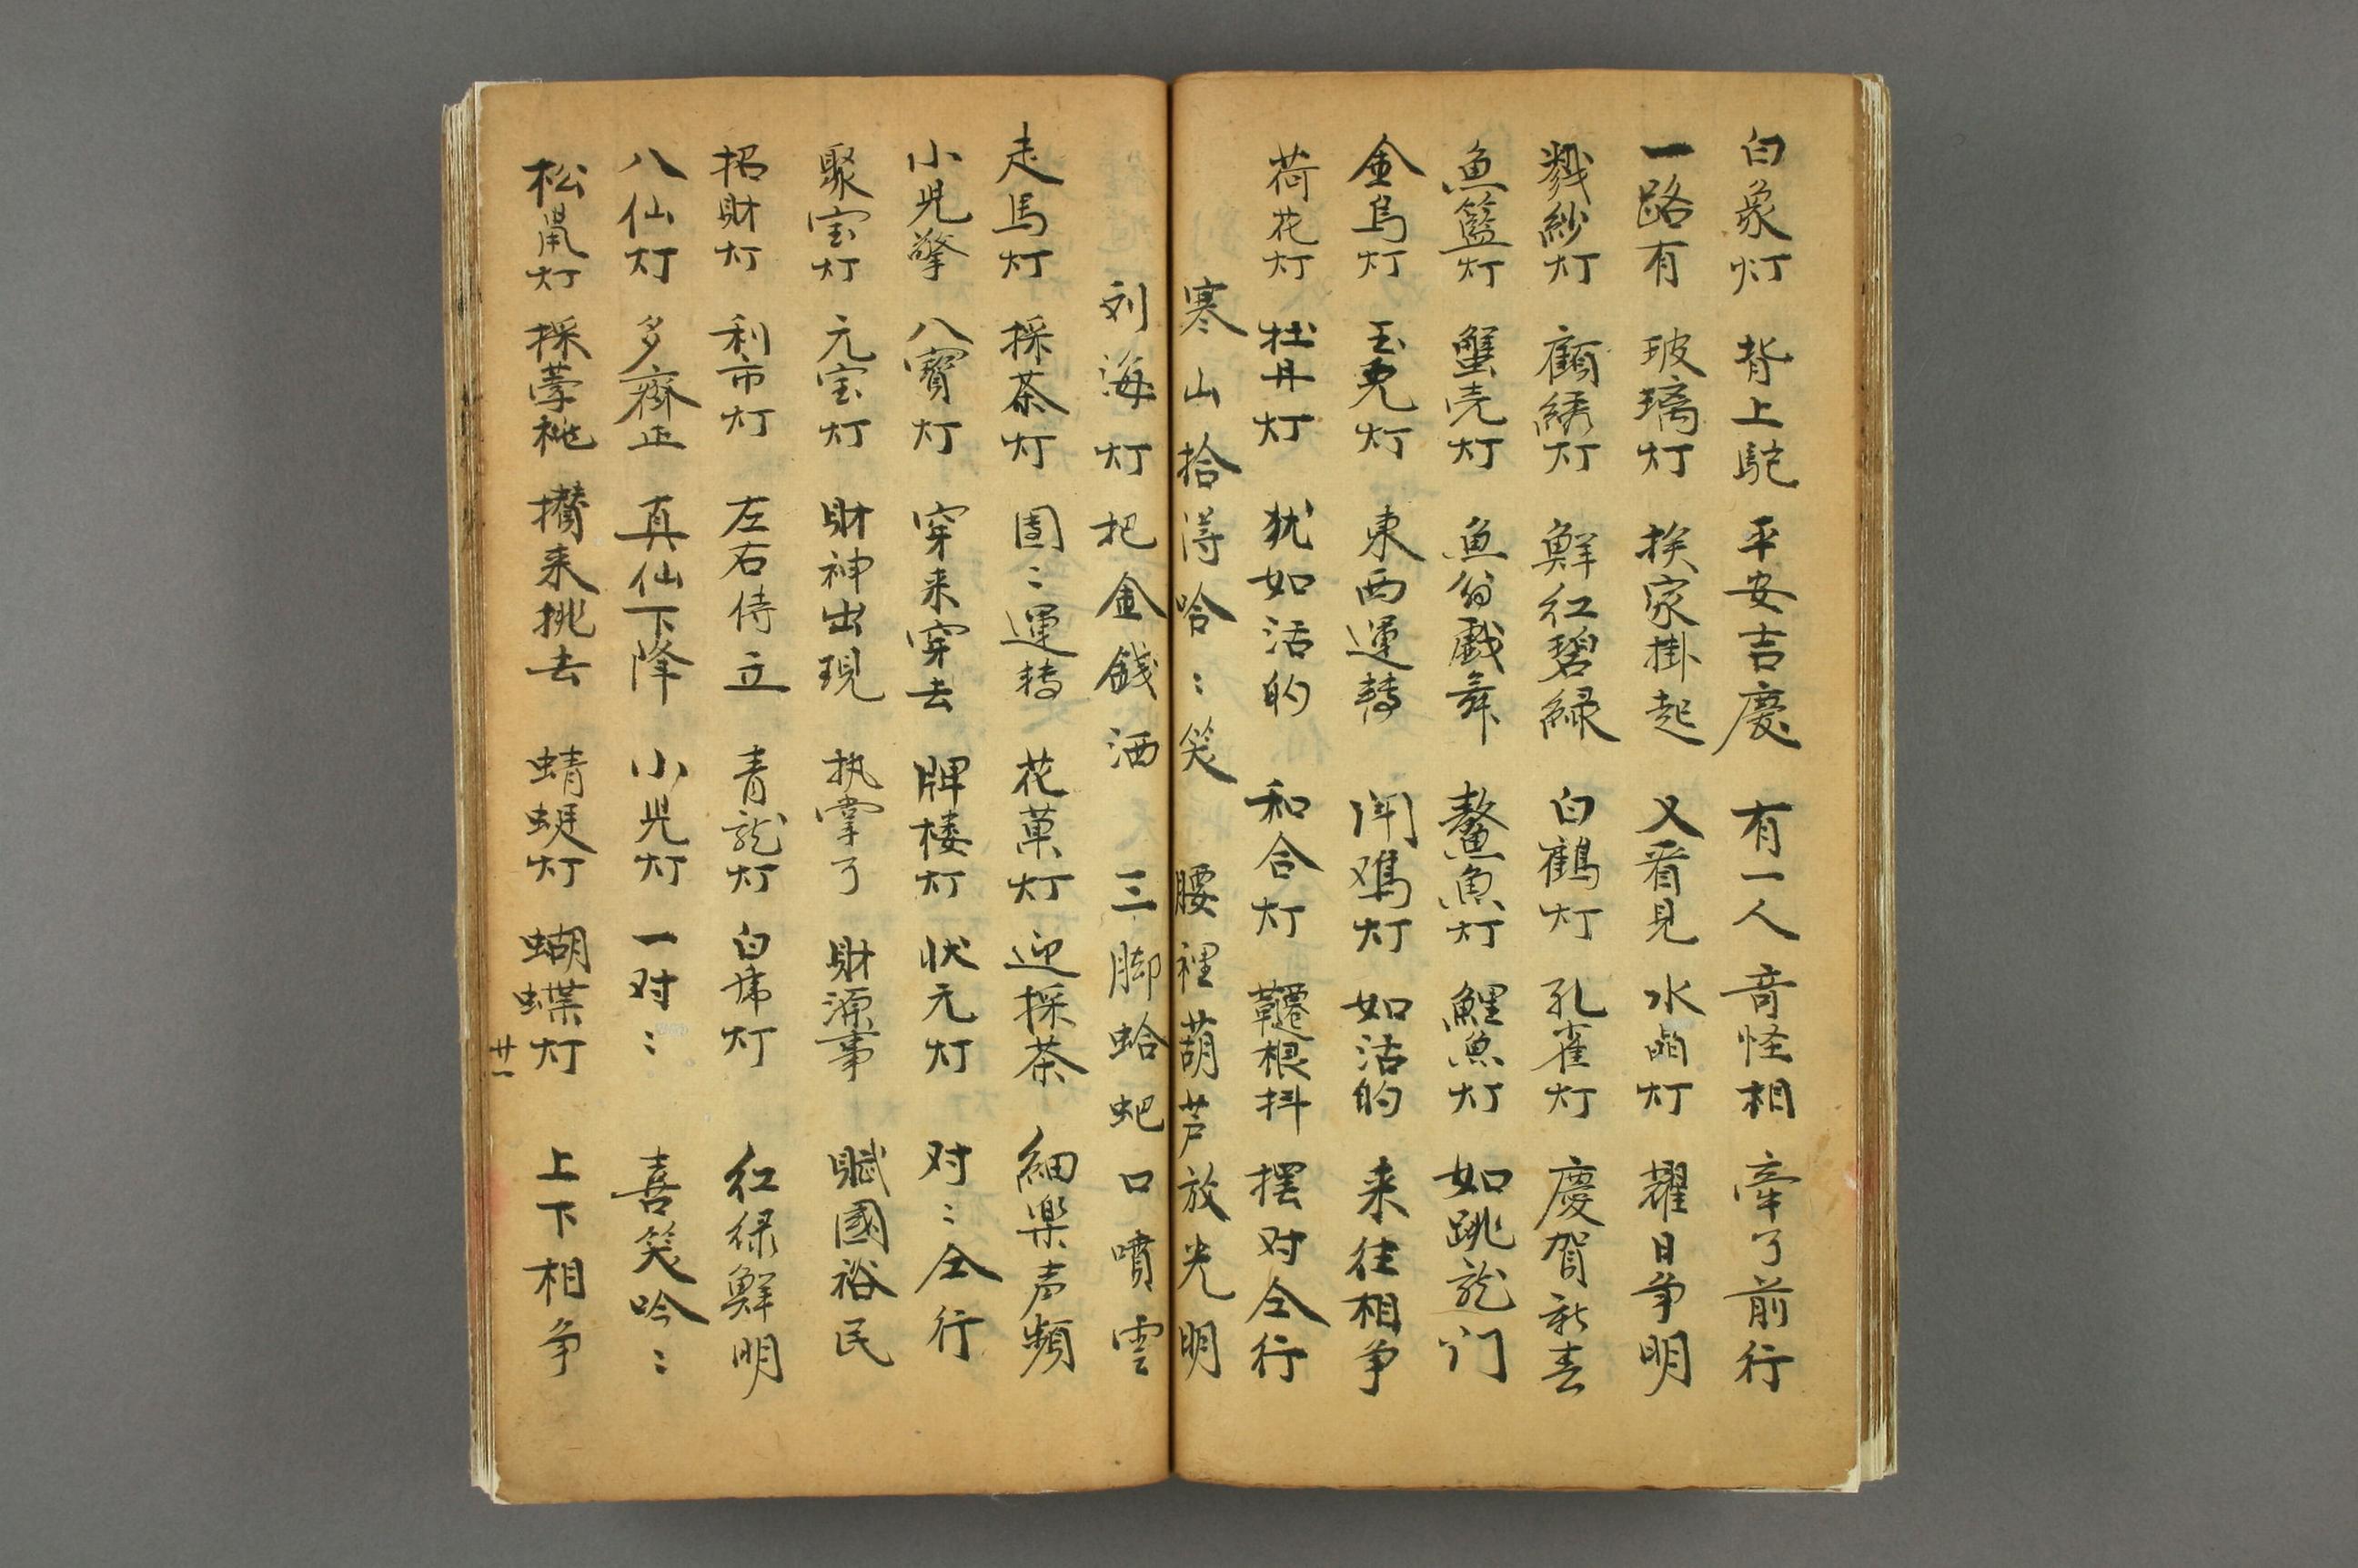 白象灯 背上駝 平安吉慶 有一人 竒怪相 牽了前行
一路有 玻璃灯 挨家掛起 又看見 水晶灯 耀日争明
戮紗灯 顧綉灯 鮮红碧緑 白鶴灯 孔雀灯 慶賀新春
魚籃灯 蟹壳灯 魚翁戯舞 鰲魚灯 鯉魚灯 如跳龙门
金烏灯 玉兎灯 東西運轉 闹鳮灯 如活的 来往相争
荷花灯 牡丹灯 犹如活的 和合灯 根抖 摆对仝行
寒山拾得哈：笑 腰裡葫芦放光明
刘海灯把金錢洒 三脚蛤蚆口噴雲
走馬灯 採茶灯 團：運轉 花菓灯 迎採茶 細楽声頻
小児擎 八寳灯 穿来穿去 牌楼灯 状元灯 对：仝行
聚宝灯 元宝灯 財神出現 执掌了 財源事 賦國裕民
招財灯 利市灯 左右侍立 青龙灯 白虎灯 红绿鮮明
八仙灯 多齊正 真仙下降 小児灯 一对： 喜笑吟：
松鼠灯 採葡桃 攅来挑去 蜻蜓灯 蝴蝶灯 上下相争
廿一